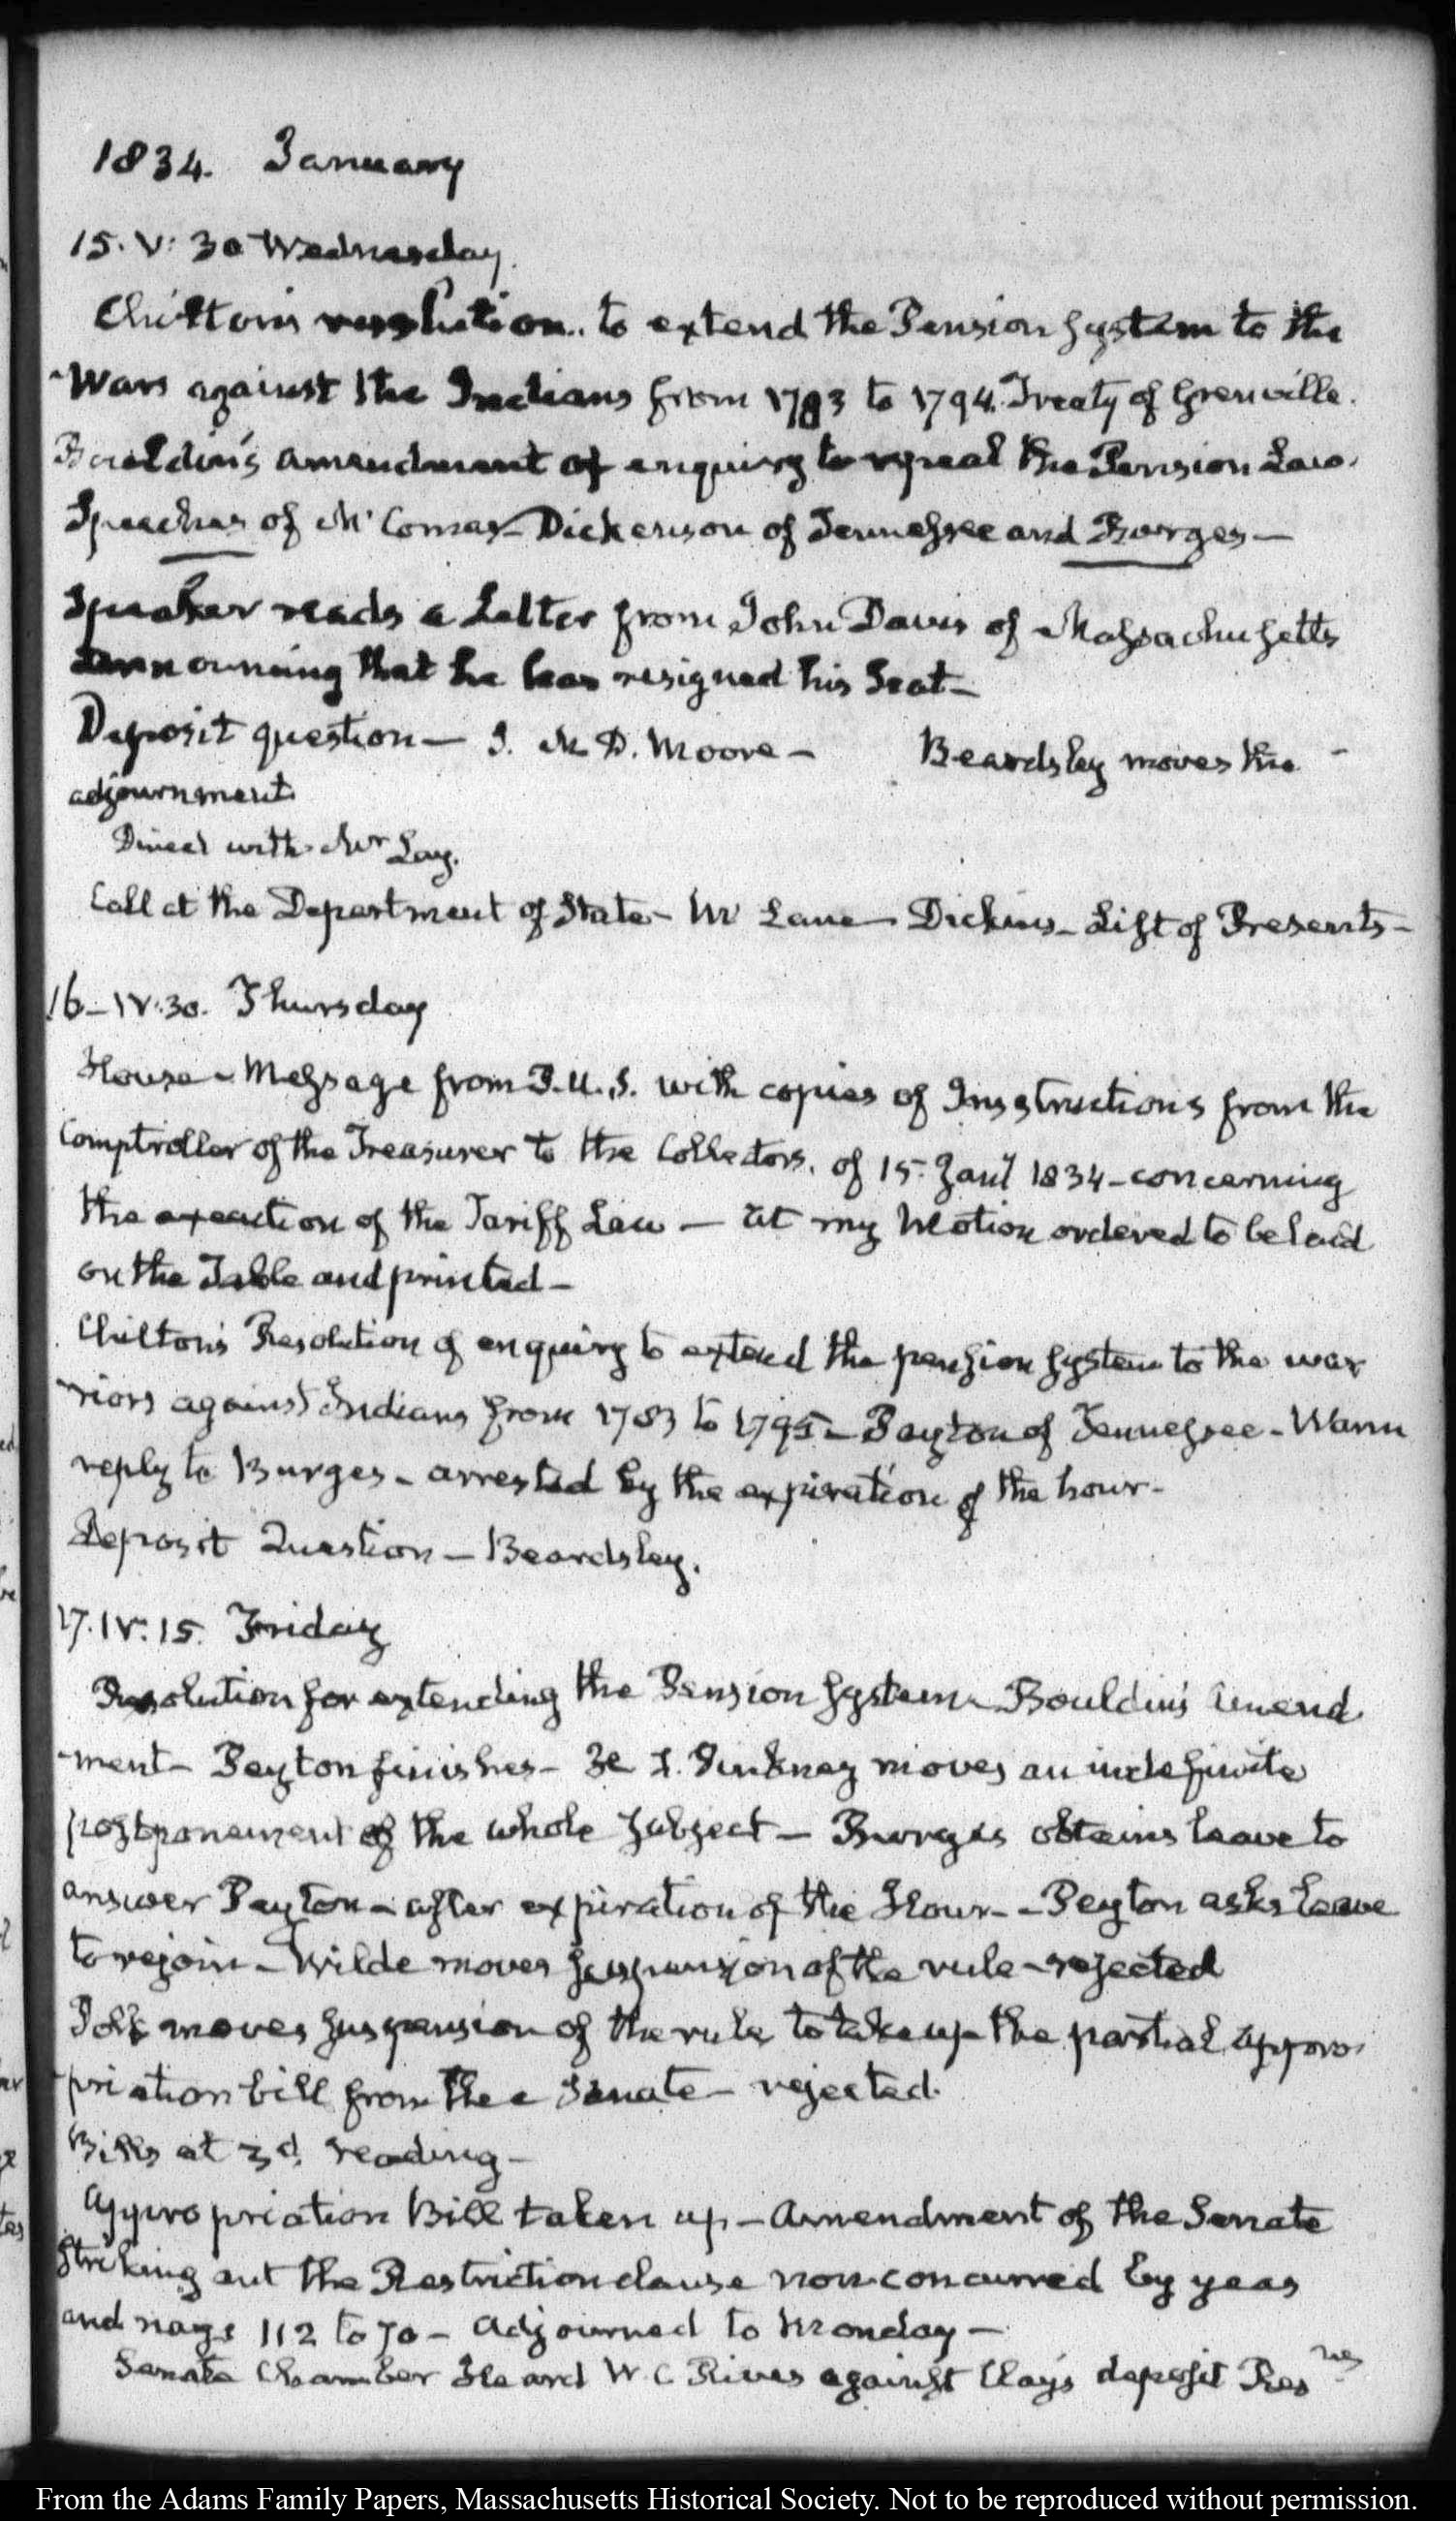 1834. January
15. V: 30 Wednesday.
Chilton's resolution.. to extend the Pension System to the
Wars against the Indians from 1783 to 1794. Treaty of Grenville.
Bouldin's amendment of enquiry to repeal the Pension Law.
Speeches of McComas - Dickerson of Tennessee and Burges —
Speaker reads a Letter from John Davis of Massachusetts
announcing that he has resigned his Seat -
Deposit question — S. McD. Moore - Beardsley moves the
adjournment
Dined with Mr Lay.
Call at the Department of State - McLane - Dickins - List of Presents -
16 - IV:30. Thursday
House - Message from P.U.S. with copies of Instructions from the
Comptroller of the Treasurer to the Collectors, of 15. Jany 1834 - concerning
the execution of the Tariff Law — at my Motion ordered to be laid
on the Table and printed -
Chilton's Resolution of enquiry to extend the pension system to the war
riors against Indians from 1783 to 1795 - Peyton of Tennessee - Warm
reply to Burges - arrested by the expiration of the hour -
Deposit Question — Beardsley.
17. IV: 15. Friday
Resolution for extending the Pension System - Bouldin's Amend
-ment - Peyton finishes - H. L. Pinckney moves an indefinite
postponement of the whole Subject — Burges obtains leave to
answer Peyton - after expiration of the Hour - - Peyton asks leave
to rejoin - Wilde moves suspension of the rule - rejected
Polk moves suspension of the rule to take up the partial appro
-priation bill from the Senate - rejected.
Bills at 3d. reading -
Appropriation Bill taken up - Amendment of the Senate
striking out the Restriction clause non concurred by yeas
and nays 112 to 70 - Adjourned to Monday —
Senate Chamber Heard W. C. Rives against Clay's deposit Resns
From the Adams Family Papers, Massachusetts Historical Society. Not to be reproduced without permission.